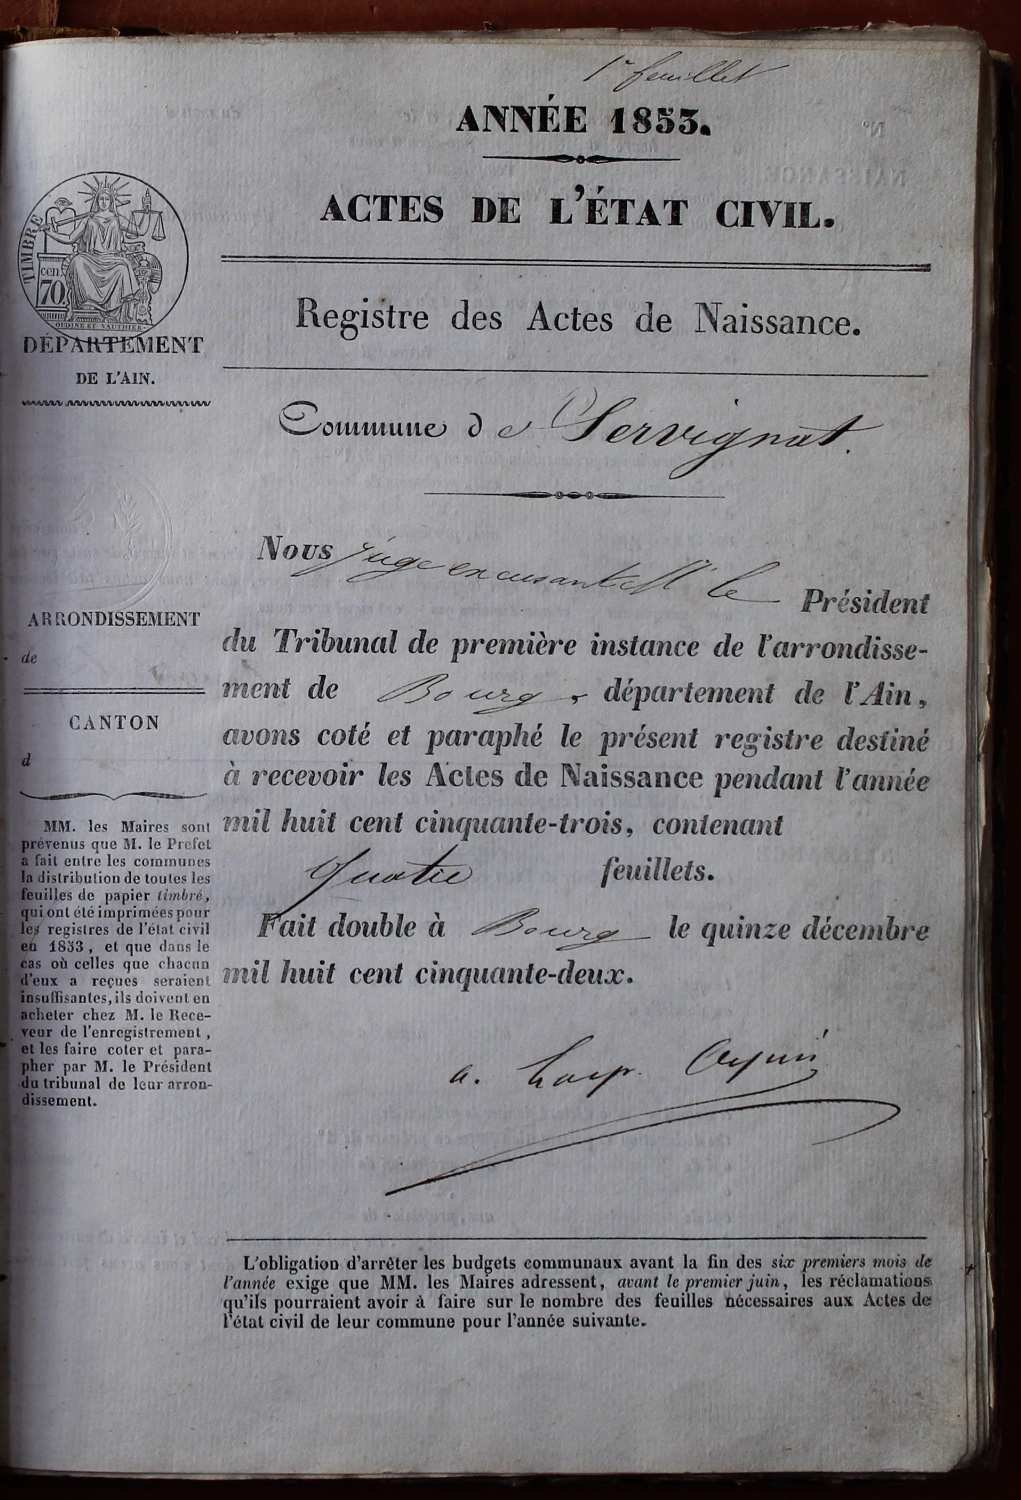 1er feuillet
ANNÉE 1853.
ACTES DE L'ÉTAT CIVIL.
TIMBRE
cen.
70
OUDINÉ ET VAUTHIER
DÉPARTEMENT
DE L'AIN.
Registre des Actes de Naissance.
Commune de Servignat.
Nous juge en cusant M. le Président
du Tribunal de première instance de l'arrondisse-
ment de Bourg, département de l'Ain,
avons coté et paraphé le présent registre destiné
à recevoir les Actes de Naissance pendant l'année
mil huit cent cinquante-trois, contenant
quatre feuillets.
Fait double à Bourg le quinze décembre
mil huit cent cinquante-deux.
ARRONDISSEMENT
de
CANTON
d
MM. les Maires sont
prévenus que M. le Préfet
a fait entre les communes
la distribution de toutes les
feuilles de papier timbré,
qui ont été imprimées pour
les registres de l'état civil
en 1853, et que dans le
cas où celles que chacun
d'eux a reçues seraient
insuffisantes, ils doivent en
acheter chez M. le Rece-
veur de l'enregistrement,
et les faire coter et para-
pher par M. le Président
du tribunal de leur arron-
dissement.
L'obligation d'arrêter les budgets communaux avant la fin des six premiers mois de
l'année exige que MM. les Maires adressent, avant le premier juin, les réclamations
qu'ils pourraient avoir à faire sur le nombre des feuilles nécessaires aux Actes de
l'état civil de leur commune pour l'année suivante.